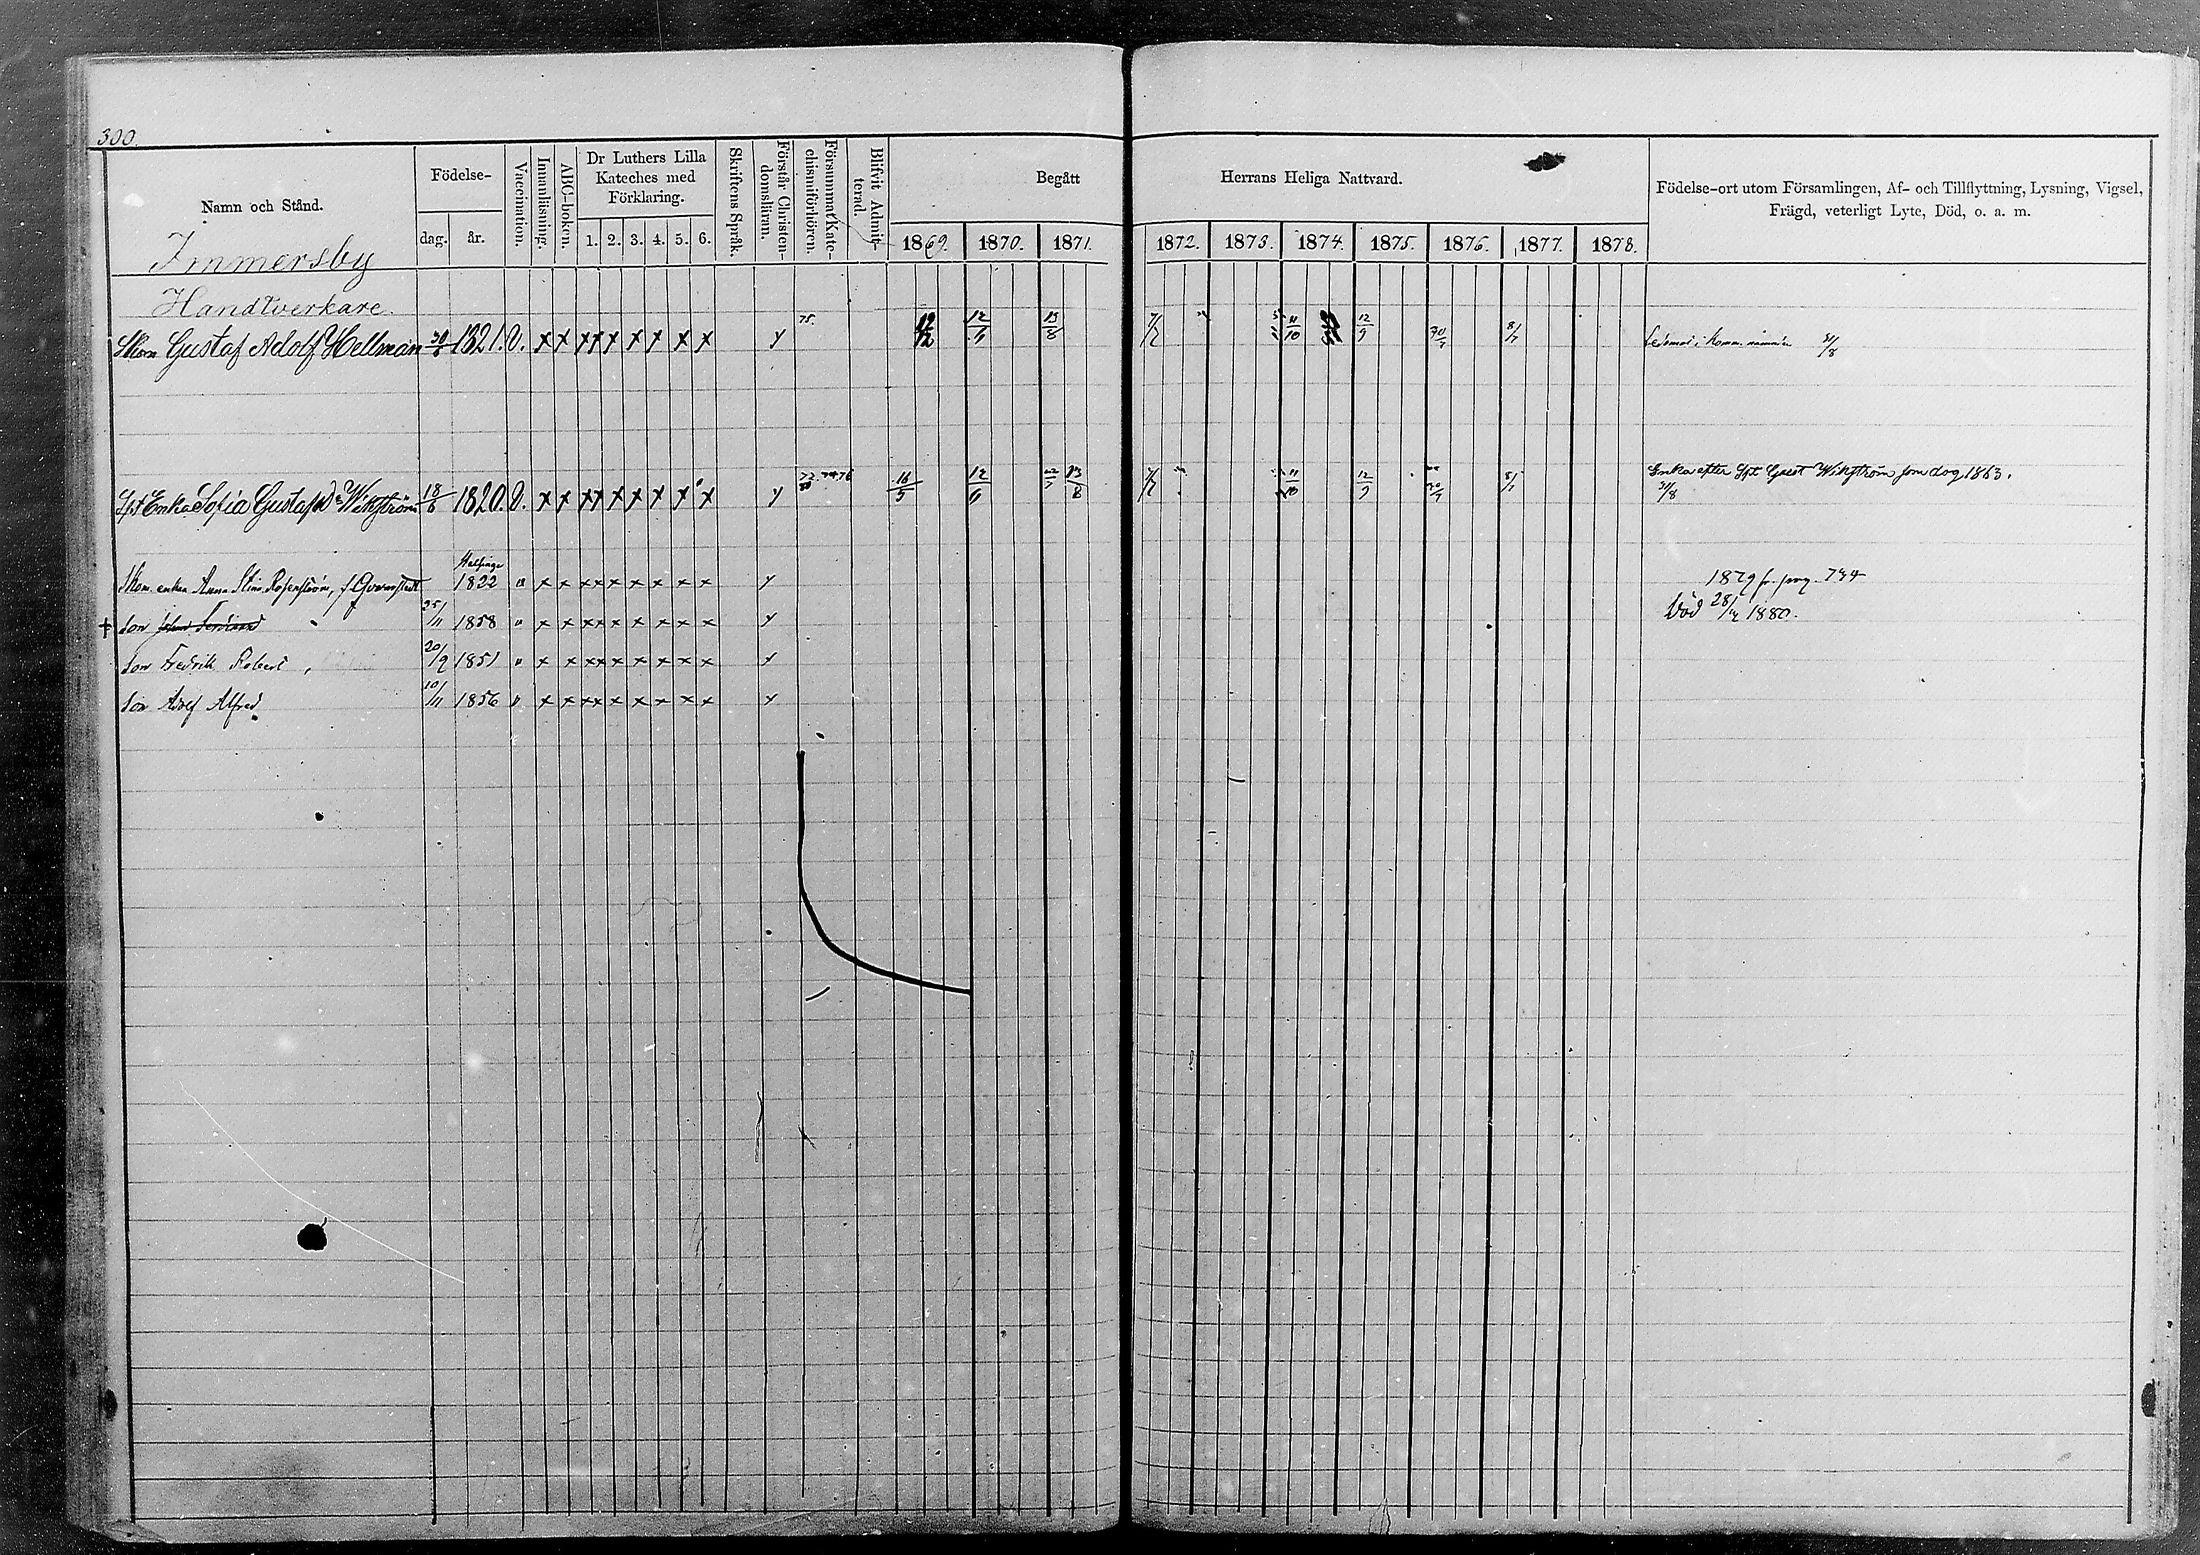 300.
Namn och Stånd.
Födelse-
dag. år.
Vaccination.
Innanläsning.
ABC-boken.
Dr Luthers Lilla
Kateches med
Förklaring.
1. 2. 3. 4. 5. 6.
Skriftens Språk.
Förstår Christen-
domsläran.
Försummat Kate-
chismiförhören.
Blifvit Admit-
terad.
Begått
Herrans Heliga Nattvard.
1869. 1870. 1871.
1872. 1873. 1874. 1875. 1876. 1877. 1878.
Födelse-ort utom Församlingen, Af- och Tillflyttning, Lysning, Vigsel,
Frägd, veterligt Lyte, Död, o. a. m.
Immersby
Handtverkare.
Skom Gustaf Adolf Hellman 1821. v. x x x x x x x x x y 75. 12/6 13/8 11/10 12/9 8/7 31/8
Enka efter Spt Gust Wikström som dog 1863.
Spt Enka Sofia Gustafsdr Wikström 18/6 1820. v. x x x x x x x x x y 16/5 12/6 13/8 11/10 12/9 8/7 31/8
Helsinge
Skom. enkan Anna Stina Rosenström, f. 1822 " x x x x x x x x x y 1879 fr. pag. 734
+ Son Johan Ferdinand 25/11 1858 " x x x x x x x x x y Död 28/12 1880.
Son Fredrik Robert, 20/9 1851 " x x x x x x x x x y
Son Adolf Alfred 10/11 1856 " x x x x x x x x x y